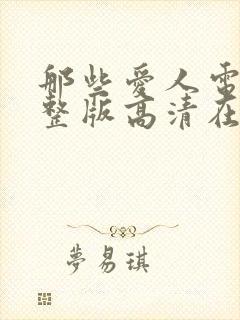 那些愛人電
整版高清在
夢易琪